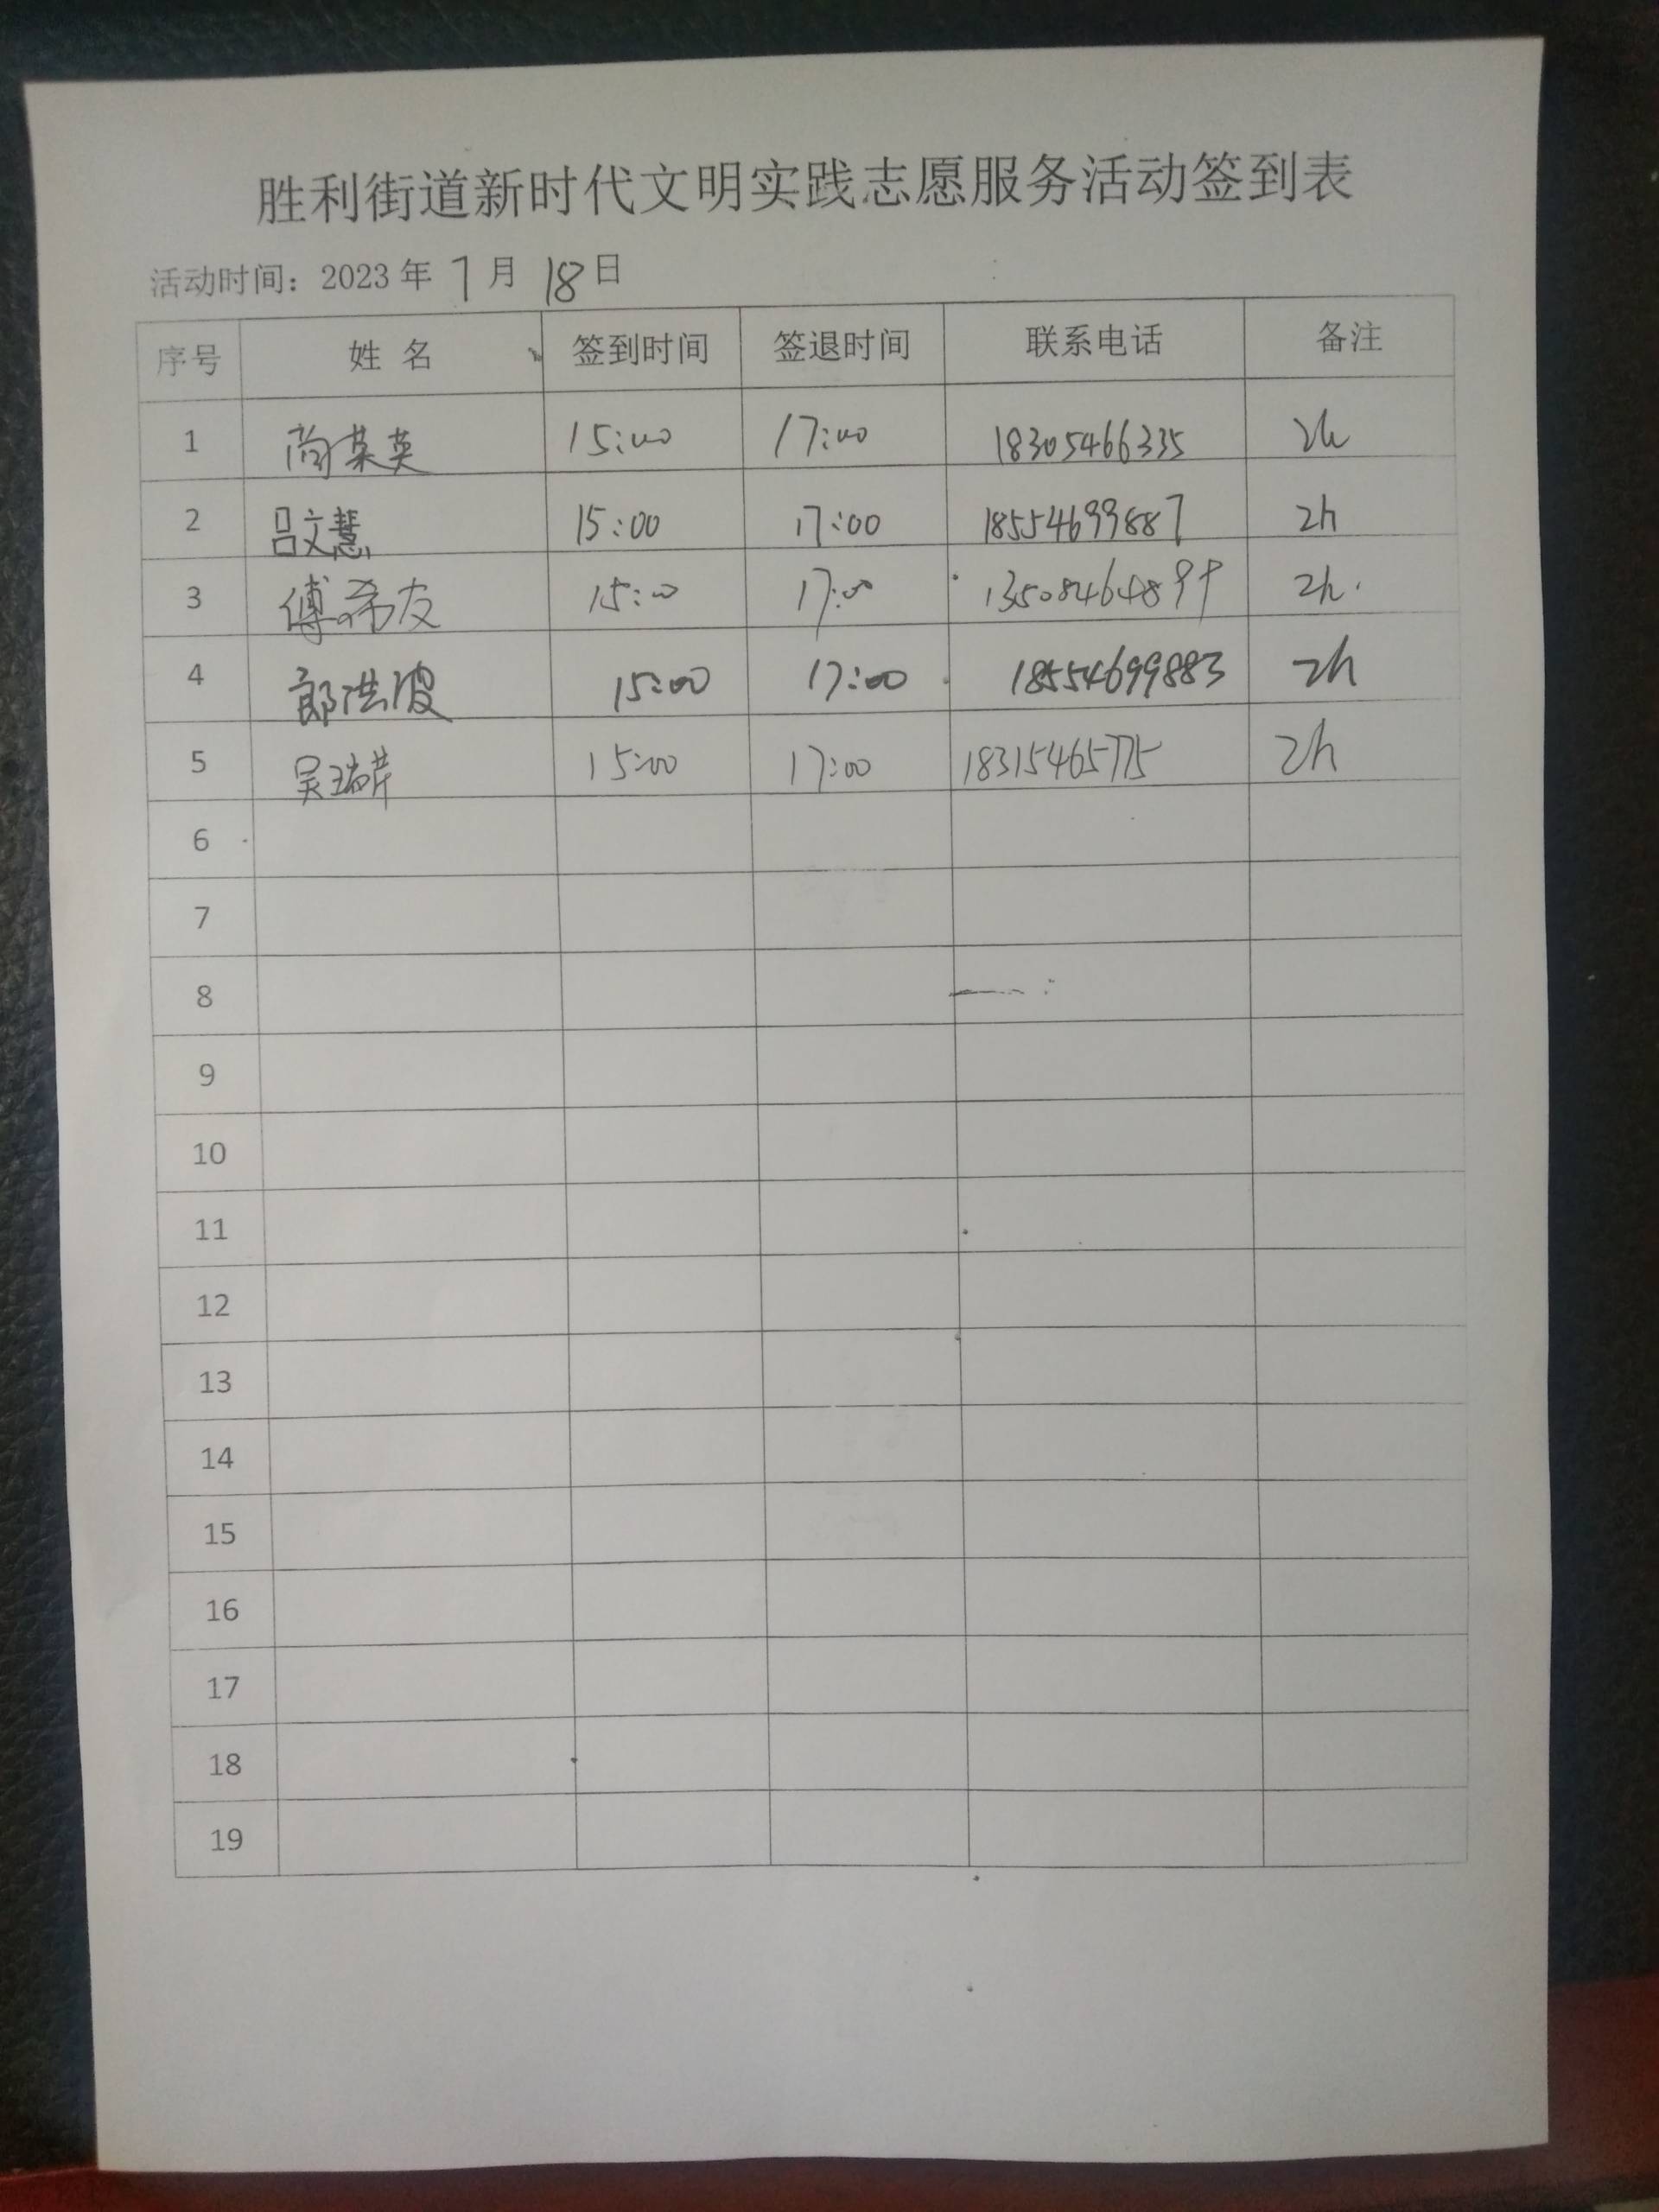 胜利街道新时代文明实践志愿服务活动签到表
活动时间：2023年 7月 18日
序号 姓 名 签到时间 签退时间 联系电话 备注
1 尚菜英 15:00 17:00 18305466335 2h
2 吕文慧 15:00 17:00 18554699887 2h
3 傅希友 15:00 17:00 13508464899 2h.
4 郎洪波 15:00 17:00 18554699883 2h
5 吴瑞芹 15:00 17:00 18315465775 2h
6
7
8
9
10
11
12
13
14
15
16
17
18
19